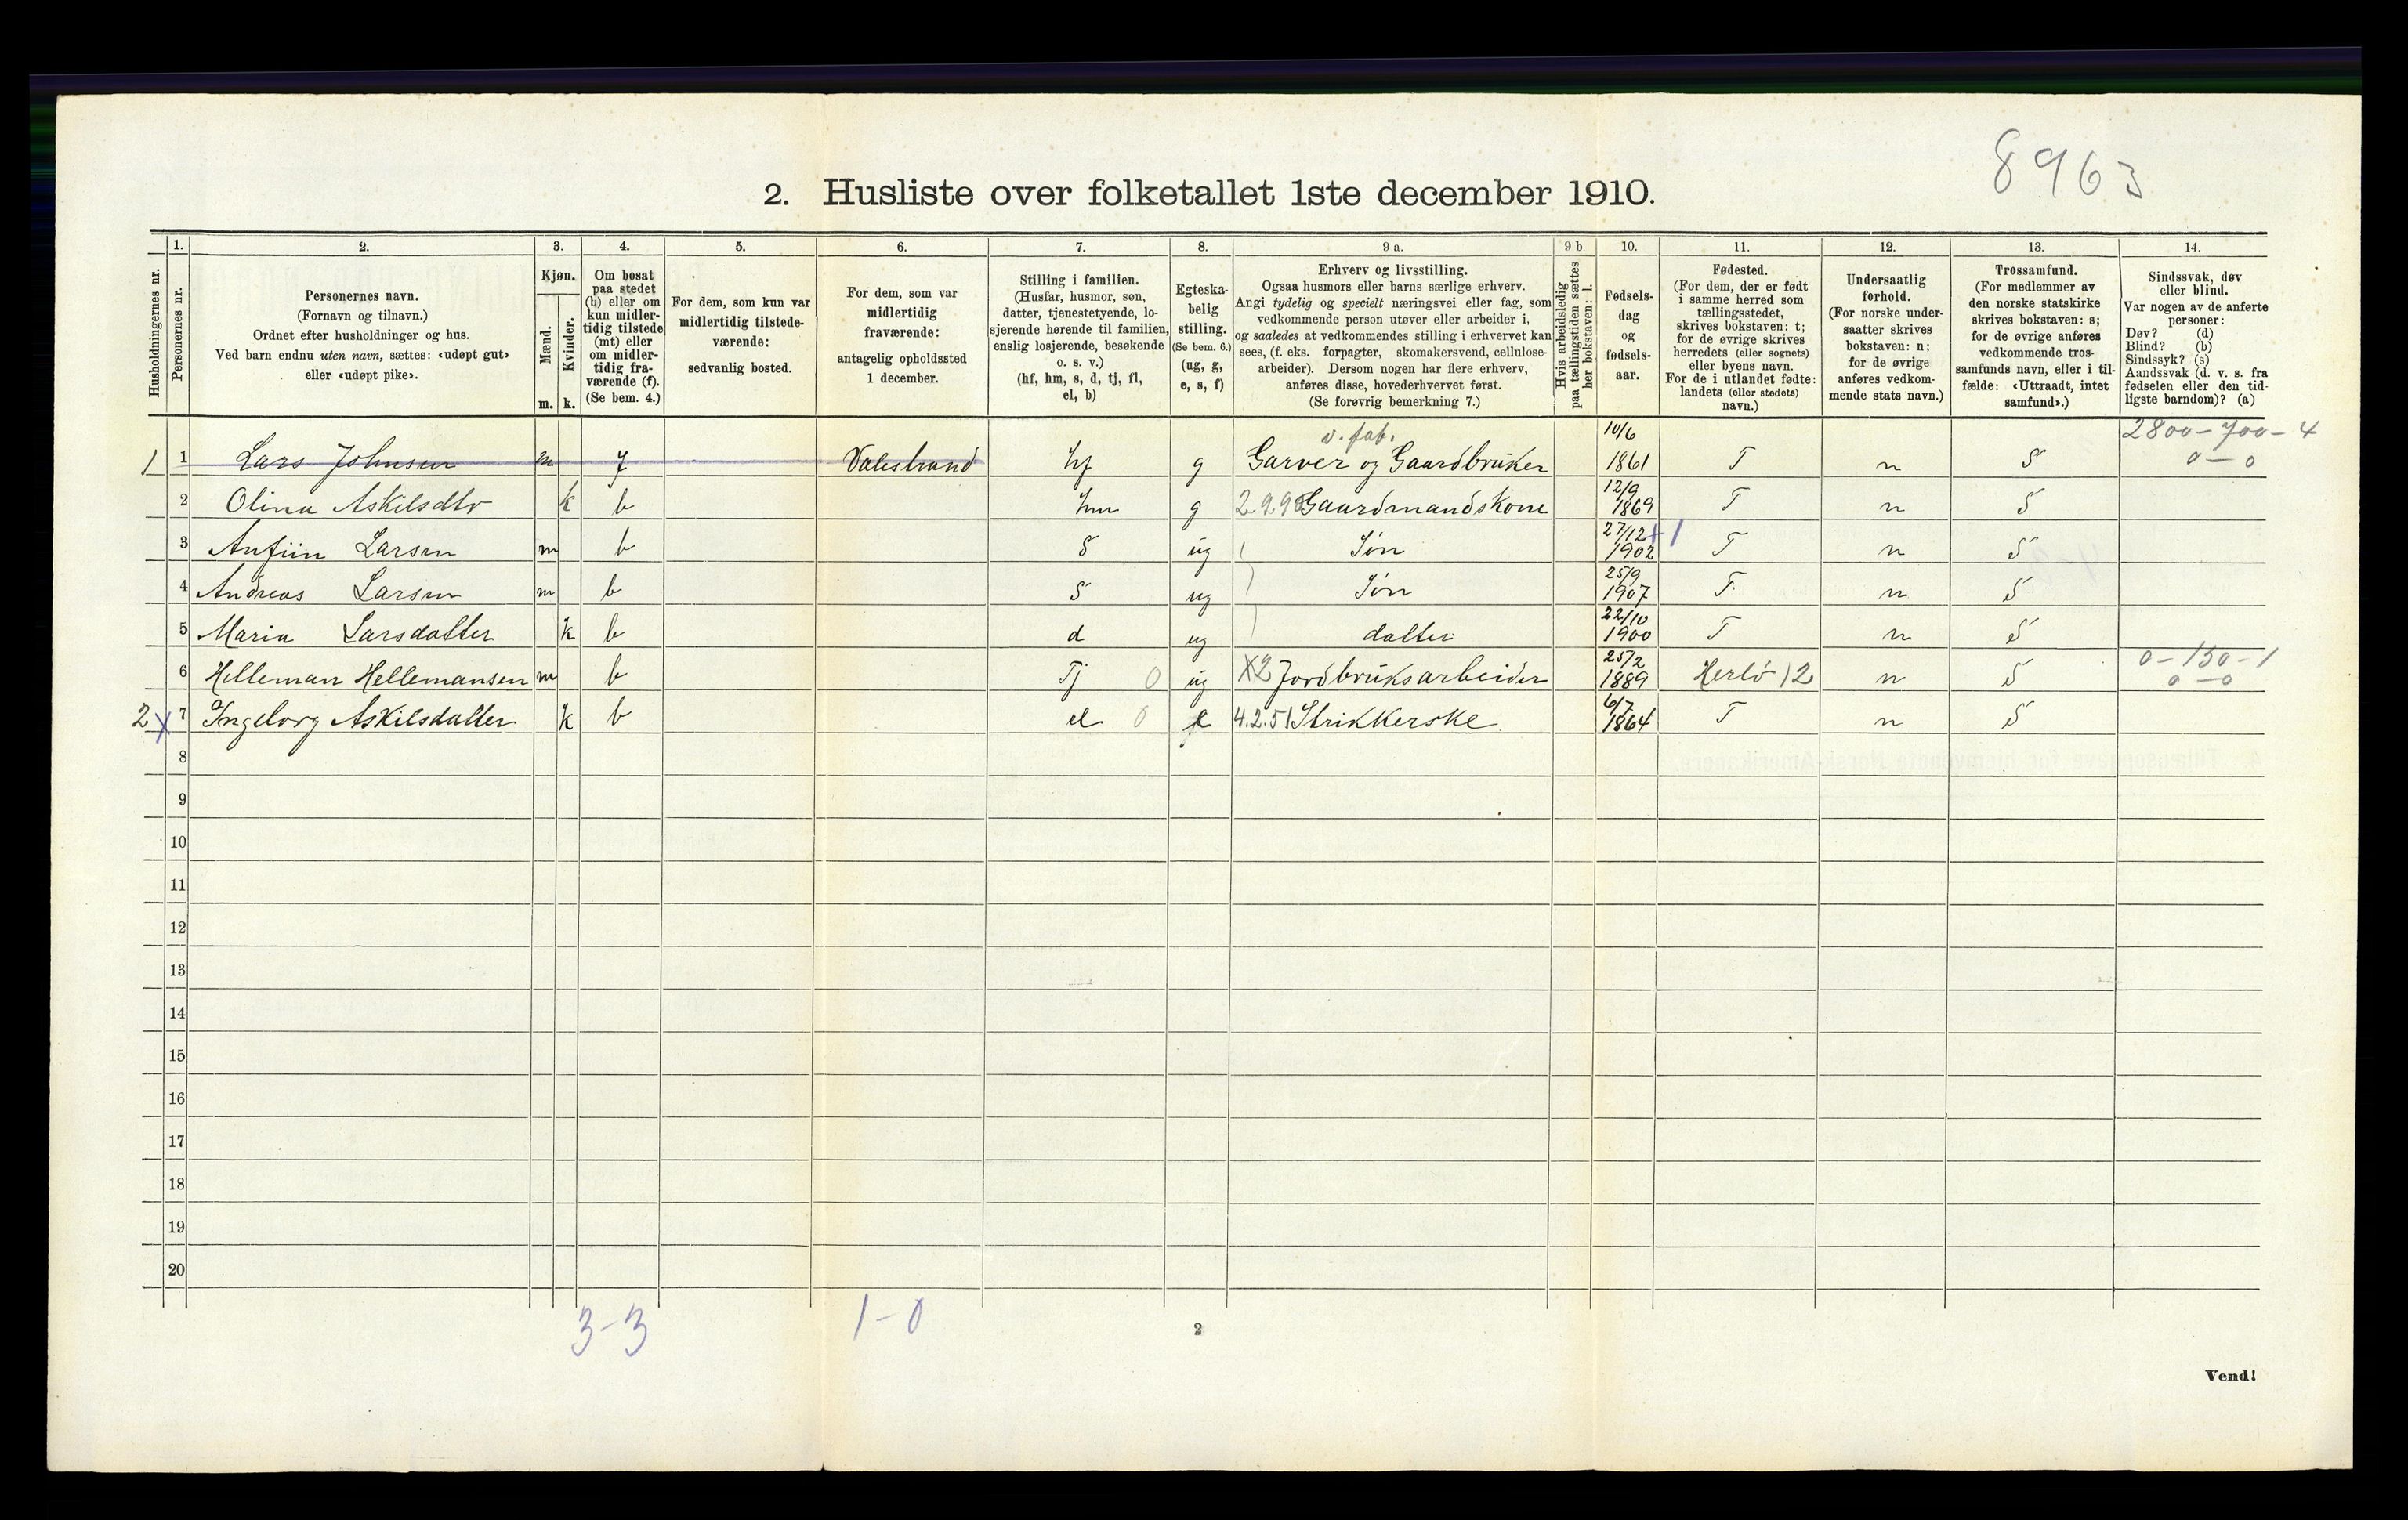 8963
2. Husliste over folketallet 1ste december 1910.
Husholdningernes nr.
1.
Personernes nr.
2.
Personernes navn.
(Fornavn og tilnavn.)
Ordnet efter husholdninger og hus.
Ved barn endnu uten navn, sættes: «udøpt gut»
eller «udøpt pike».
3.
Kjøn.
Mænd.
Kvinder.
m. k.
4.
Om bosat
paa stedet
(b) eller om
kun midler-
tidig tilstede
(mt) eller
om midler-
tidig fra-
værende (f).
(Se bem. 4.)
5.
For dem, som kun var
midlertidig tilstede-
værende:
sedvanlig bosted.
6.
For dem, som var
midlertidig
fraværende:
antagelig opholdssted
1 december.
7.
Stilling i familien.
(Husfar, husmor, søn,
datter, tjenestetyende, lo-
sjerende hørende til familien,
enslig losjerende, besøkende
o. s. v.)
(hf, hm, s, d, tj, fl,
el, b)
8.
Egteska-
belig
stilling.
(Se bem. 6.)
(ug, g,
e, s, f)
9 a.
Erhverv og livsstilling.
Ogsaa husmors eller barns særlige erhverv.
Angi tydelig og specielt næringsvei eller fag, som
vedkommende person utøver eller arbeider i,
og saaledes at vedkommendes stilling i erhvervet kan
sees, (f. eks. forpagter, skomakersvend, cellulose-
arbeider). Dersom nogen har flere erhverv,
anføres disse, hovederhvervet først.
(Se forøvrig bemerkning 7.)
9 b
Hvis arbeidsledig
paa tællingstiden sættes
her bokstaven: l.
10.
Fødsels-
dag
og
fødsels-
aar.
11.
Fødested.
(For dem, der er født
i samme herred som
tællingsstedet,
skrives bokstaven: t;
for de øvrige skrives
herredets (eller sognets)
eller byens navn.
For de i utlandet fødte:
landets (eller stedets)
navn.)
12.
Undersaatlig
forhold.
(For norske under-
saatter skrives
bokstaven: n;
for de øvrige
anføres vedkom-
mende stats navn.)
13.
Trossamfund.
(For medlemmer av
den norske statskirke
skrives bokstaven: s;
for de øvrige anføres
vedkommende tros-
samfunds navn, eller i til-
fælde: «Uttraadt, intet
samfund».)
14.
Sindssvak, døv
eller blind.
Var nogen av de anførte
personer:
Døv? (d)
Blind? (b)
Sindssyk? (s)
Aandssvak (d. v. s. fra
fødselen eller den tid-
ligste barndom)? (a)
v. fab. 10/6 2800-700-4
1 1 Lars Johnsen m f Valestrand hf g Garver og Gaardbruker 1861 T n S 0-0
2 Olina Askilsdtr k b hm g 2.9.9 Gaardmandskone 12/9 1869 T n S
3 Anfiin Larsen m b S ug Søn 27/12 1902 +1 T n S
4 Andreas Larsen m b S ug Søn 25/9 1907 T n S
5 Maria Larsdatter k b d ug datter 22/10 1900 T n S
6 Helleman Hellemansen m b Tj 0 ug X2 Jordbruksarbeider 25/2 1889 Herlø )2 n S 0-150-1 0-0
2 x 7 Ingeborg Askilsdatter k b el 0 4.2.51 Strikkerske 6/7 1864 T n S
8
9
10
11
12
13
14
15
16
17
18
19
20
3-3 1-0
2
Vend!